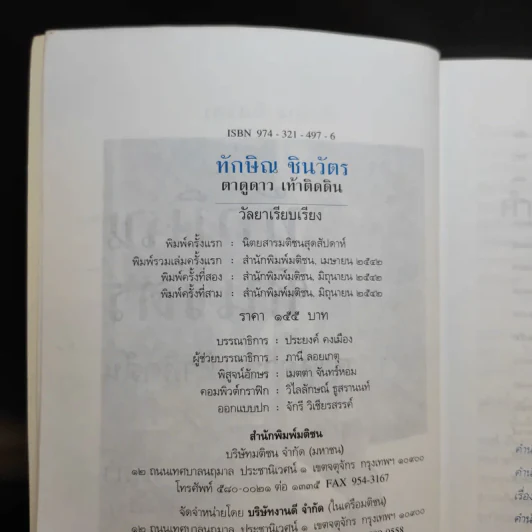 ISBN 974 - 321 - 497 - 6
ทักษิณ ชินวัตร
ตาดูดาว เท้าติดดิน
วัลยาเรียบเรียง
พิมพ์ครั้งแรก : นิตยสารมติชนสุดสัปดาห์
พิมพ์รวมเล่มครั้งแรก : สำนักพิมพ์มติชน, เมษายน ๒๕๔๒
พิมพ์ครั้งที่สอง : สำนักพิมพ์มติชน, มิถุนายน ๒๕๔๒
พิมพ์ครั้งที่สาม : สำนักพิมพ์มติชน, มิถุนายน ๒๕๔๒
ราคา ๑๕๕ บาท
บรรณาธิการ : ประยงค์ คงเมือง
ผู้ช่วยบรรณาธิการ : ภานี ลอยเกตุ
พิสูจน์อักษร : เมตตา จันทร์หอม
คอมพิวต์กราฟิก : วิไลลักษณ์ ชูสรานนท์
ออกแบบปก : จักรี วิเชียรสรรค์
สำนักพิมพ์มติชน
บริษัทมติชน จำกัด (มหาชน)
๑๒ ถนนเทศบาลนฤมาล ประชานิเวศน์ ๑ เขตจตุจักร กรุงเทพฯ ๑๐๙๐๐
โทรศัพท์ ๕๘๐-๐๐๒๑ ต่อ ๑๓๓๕ FAX 954-3167
จัดจำหน่ายโดย บริษัทงานดี จำกัด (ในเครือมติชน)
๑๒ ถนนเทศบาลนฤมาล ประชานิเวศน์ ๑ เขตจตุจักร กรุงเทพฯ ๑๐๙๐๐